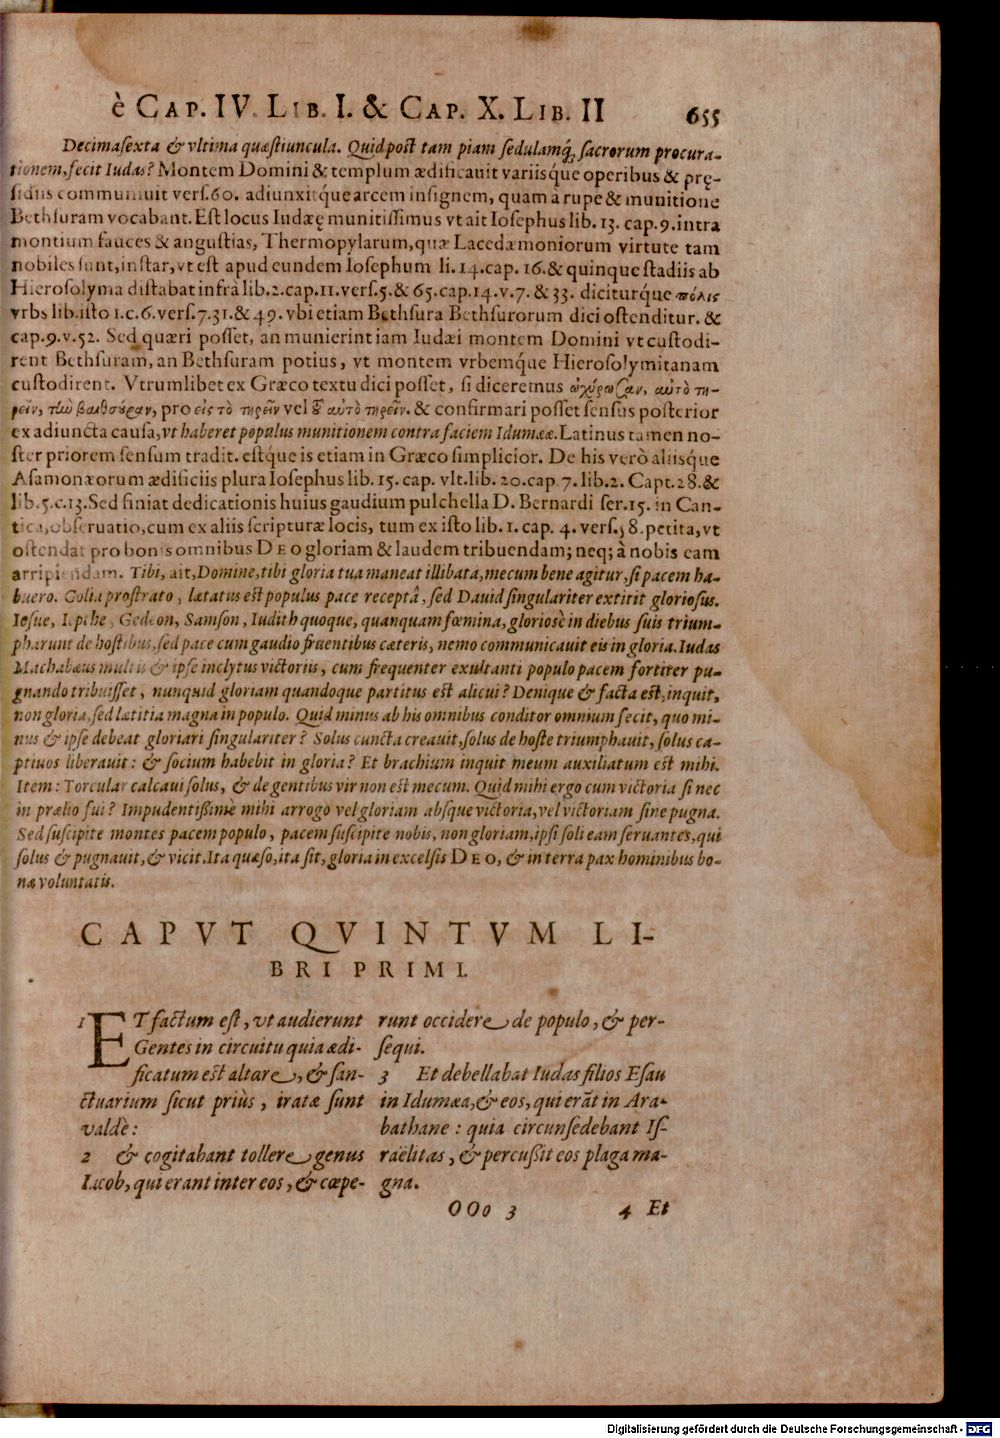 è CAP. IV. LIB. I. & CAP. X. LIB. II 655
Decimasexta & vltima quæstiuncula. Quid post tam piam sedulamq́; sacrorum procura-
tionem, fecit Iudas? Montem Domini & templum ædificauit variisque operibus & prę-
sidiis communiuit vers. 60. adiunxitque arcem insignem, quam à rupe & munitione
Bethsuram vocabant. Est locus Iudæę munitissimus vt ait Iosephus lib. 13. cap. 9. intra
montium fauces & angustias, Thermopylarum, quæ Lacedæmoniorum virtute tam
nobiles sunt, instar, vt est apud eundem Iosephum li. 14. cap. 16. & quinque stadiis ab
Hierosolyma distabat infrà lib. 2. cap. 11. vers. 5. & 65. cap. 14. v. 7. & 33. diciturq́ue πόλις
vrbs lib. isto 1. c. 6. vers. 7. 31. & 49. vbi etiam Bethsura Bethsurorum dici ostenditur. &
cap. 9. v. 52. Sed quæri posset, an munierint iam Iudæi montem Domini vt custodi-
rent Bethsuram, an Bethsuram potius, vt montem vrbemq́ue Hierosolymitanam
custodirent. Vtrumlibet ex Græco textu dici posset, si diceremus ὠχύρωσαν, αὐτὸ τη-
ρεῖν, τὴν βαιθσούραν, pro εἰς τὸ τηρεῖν vel τοῦ αὐτὸ τηρεῖν. & confirmari posset sensus posterior
ex adiuncta causa, vt haberet populus munitionem contra faciem Idumææ. Latinus tamen no-
ster priorem sensum tradit. estque is etiam in Græco simplicior. De his verò aliisque
Asamonæorum ædificiis plura Iosephus lib. 15. cap. vlt. lib. 20. cap. 7. lib. 2. Capt. 28. &
lib. 5. c. 13. Sed finiat dedicationis huius gaudium pulchella D. Bernardi ser. 15. in Can-
tica, obseruatio, cum ex aliis scripturæ locis, tum ex isto lib. 1. cap. 4. vers. 58. petita, vt
ostendat pro bonis omnibus DEO gloriam & laudem tribuendam; neq; à nobis eam
arripiendam. Tibi, ait, Domine, tibi gloria tua maneat illibata, mecum bene agitur, si pacem ha-
buero. Golia prostrato, lætatus est populus pace receptâ, sed Dauid singulariter extitit gloriosus.
Iosue, Iepthe, Gedeon, Samson, Iudith quoque, quanquam fœmina, gloriosè in diebus suis trium-
pharunt de hostibus, sed pace cum gaudio fruentibus cæteris, nemo communicauit eis in gloria. Iudas
Machabæus multis & ipse inclytus victoriis, cum frequenter exultanti populo pacem fortiter pu-
gnando tribuisset, nunquid gloriam quandoque partitus est alicui? Denique & facta est, inquit,
non gloria, sed lætitia magna in populo. Quid minus ab his omnibus conditor omnium fecit, quo mi-
nus & ipse debeat gloriari singulariter? Solus cuncta creauit, solus de hoste triumphauit, solus ca-
ptiuos liberauit: & socium habebit in gloria? Et brachium inquit meum auxiliatum est mihi.
Item: Torcular calcaui solus, & de gentibus vir non est mecum. Quid mihi ergo cum victoria si nec
in prælio fui? Impudentissimè mihi arrogo vel gloriam absque victoria, vel victoriam sine pugna.
Sed suscipite montes pacem populo, pacem suscipite nobis, non gloriam, ipsi soli eam seruantes, qui
solus & pugnauit, & vicit. Ita quæso, ita sit, gloria in excelsis DEO, & in terra pax hominibus bo-
næ voluntatis.
CAPVT QVINTVM LI-
BRI PRIMI.
1 ET factum est, vt audierunt
Gentes in circuitu quia ædi-
ficatum est altare, & san-
ctuarium sicut priùs, iratæ sunt
valdè:
2 & cogitabant tollere genus
Iacob, qui erant inter eos, & cœpe-
runt occidere de populo, & per-
sequi.
3 Et debellabat Iudas filios Esau
in Idumæa, & eos, qui erāt in Ara-
bathane: quia circunsedebant Is-
raëlitas, & percussit eos plaga ma-
gna.
OOo 3 4 Et
Digitalisierung gefördert durch die Deutsche Forschungsgemeinschaft - DFG